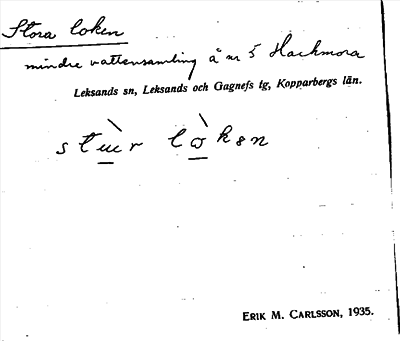 Stora loken
mindre vattensamling å nr 5 Hackmora
Leksands sn, Leksands och Gagnefs tg, Kopparbergs län.
ERIK M. CARLSSON, 1935.